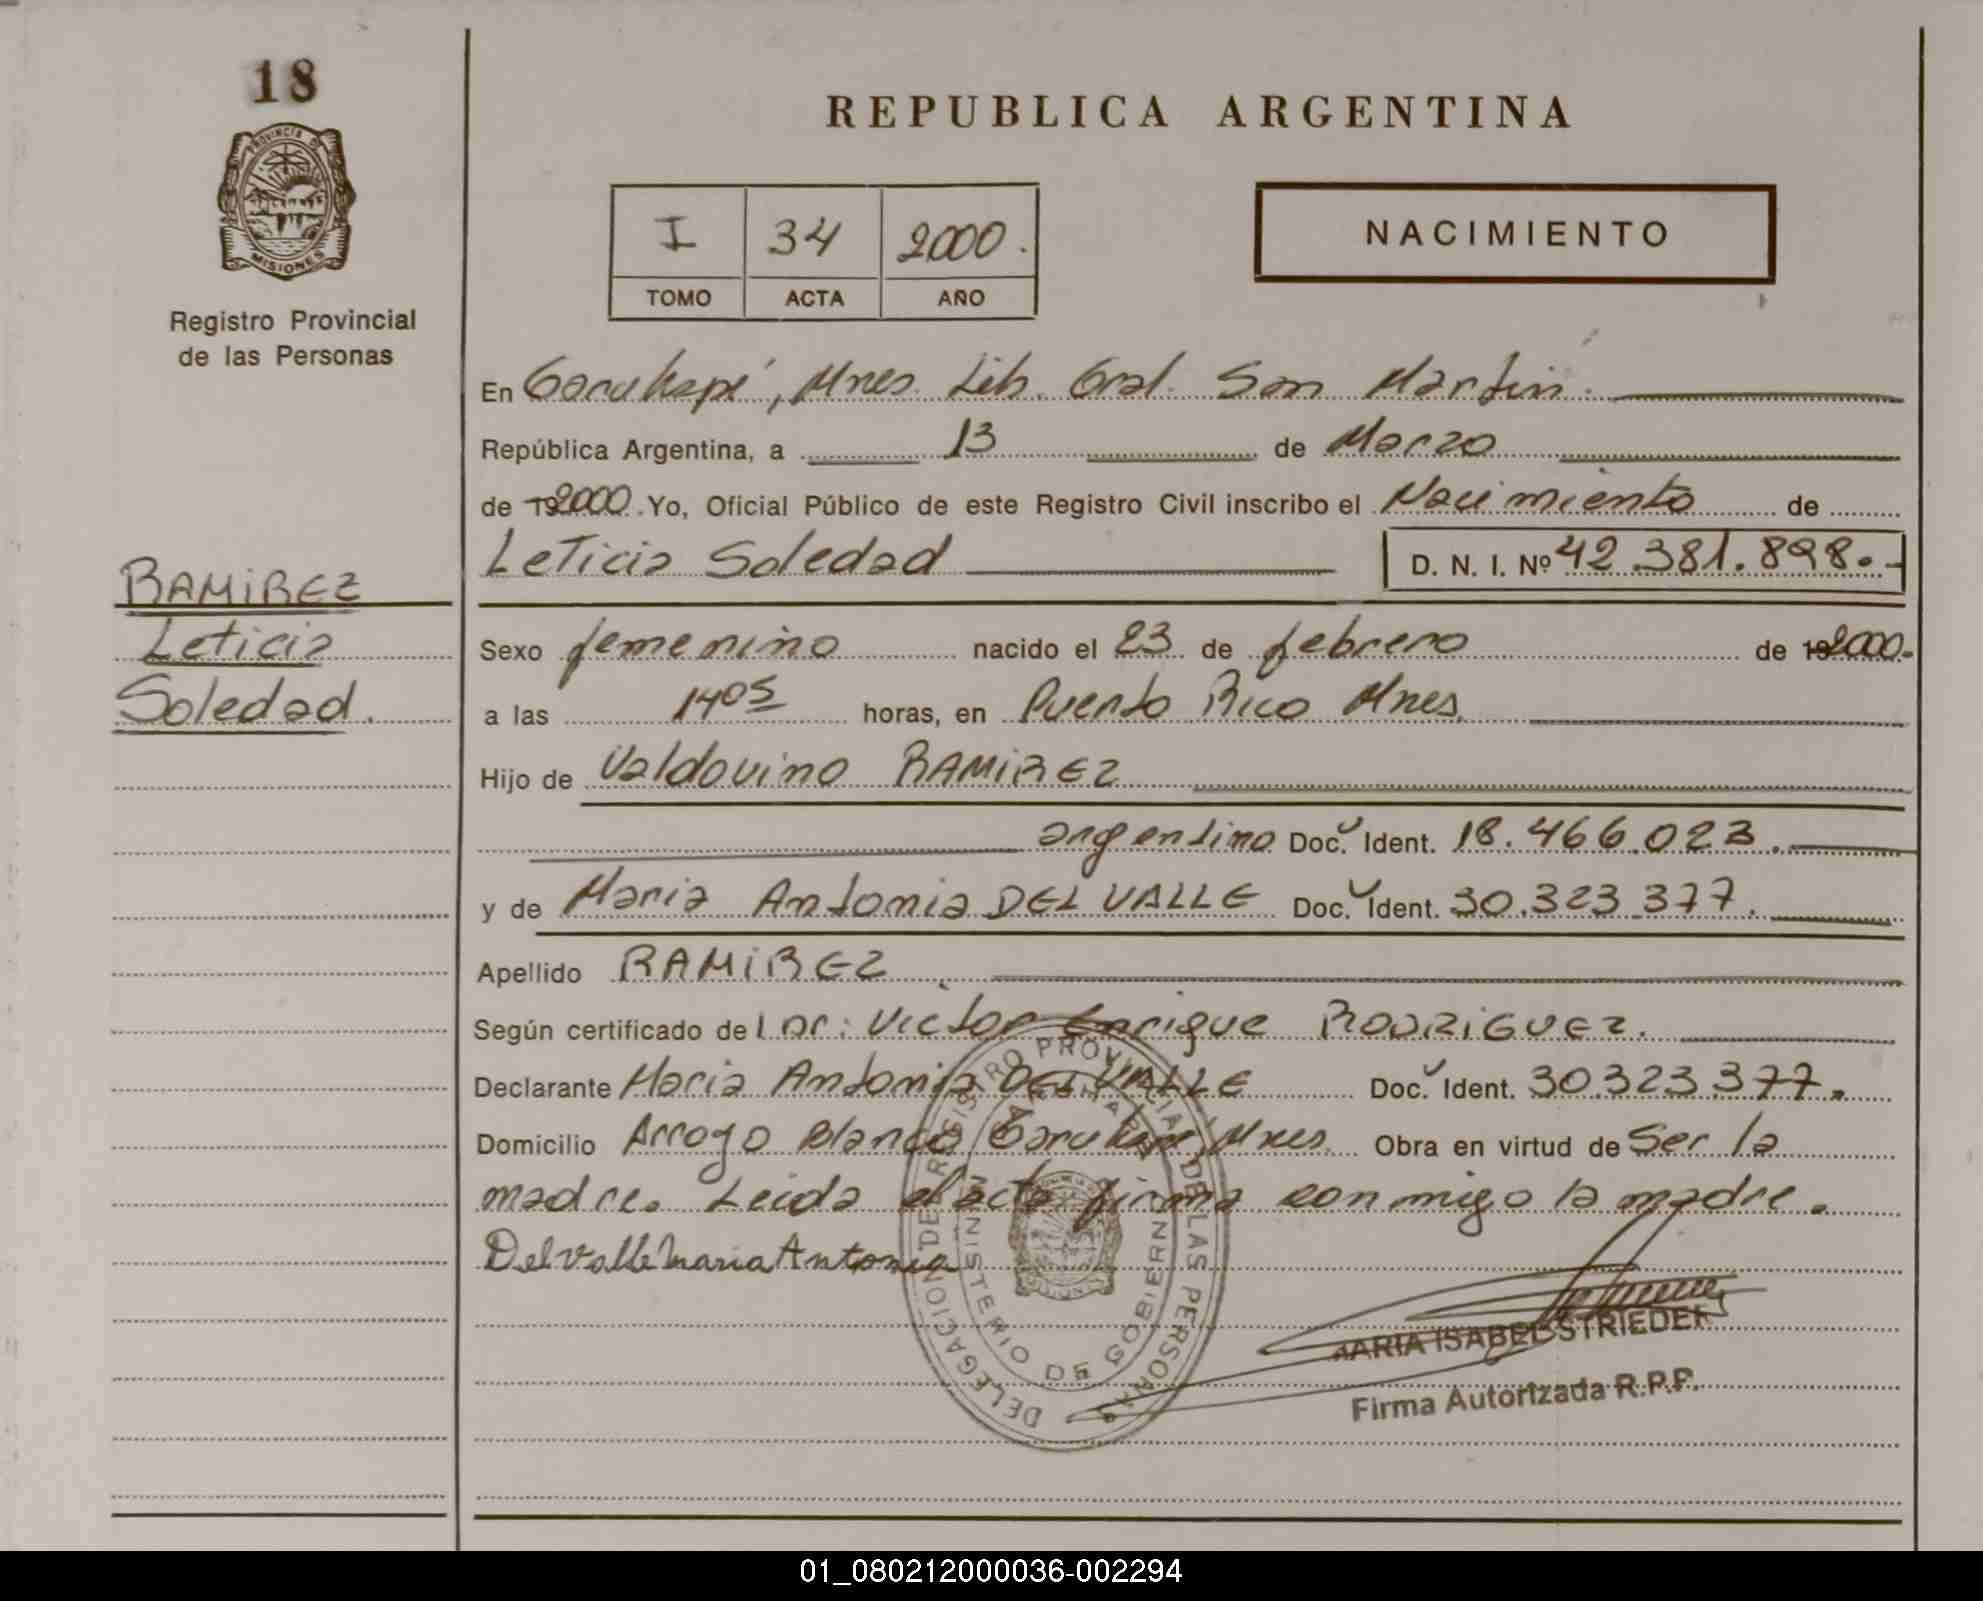 18
PROVINCIA DE
MISIONES
Registro Provincial
de las Personas
RAMIREZ
Leticia
Soledad.
REPUBLICA ARGENTINA
I 34 2000.
TOMO ACTA AÑO
NACIMIENTO
En Garuhapé, Mnes. Lib. Gral. San Martín.
República Argentina, a 13 de Marzo
de 192000. Yo, Oficial Público de este Registro Civil inscribo el Nacimiento de
Leticia Soledad D. N. I. Nº 42.381.898.-
Sexo femenino nacido el 23 de febrero de 192000.
a las 1405 horas, en Puerto Rico Mnes.
Hijo de Valdovino RAMIREZ
argentino Doc. Ident. 18.466.023.
y de Maria Antonia DEL VALLE Doc. Ident. 30.323.377.
Apellido RAMIREZ
Según certificado del Dr: Victor Enrique RODRIGUEZ.
Declarante Maria Antonia DEL VALLE Doc. Ident. 30.323.377.
Domicilio Arroyo Blanco Garuhape, Mnes. Obra en virtud de Ser la
madre. Leida el acta firma conmigo la madre.
Del Valle Maria Antonia
DELEGACION DE REGISTRO PROVINCIAL DE LAS PERSONAS
MINISTERIO DE GOBIERNO
MARIA ISABEL STRIEDER
Firma Autorizada R.P.P.
01_080212000036-002294